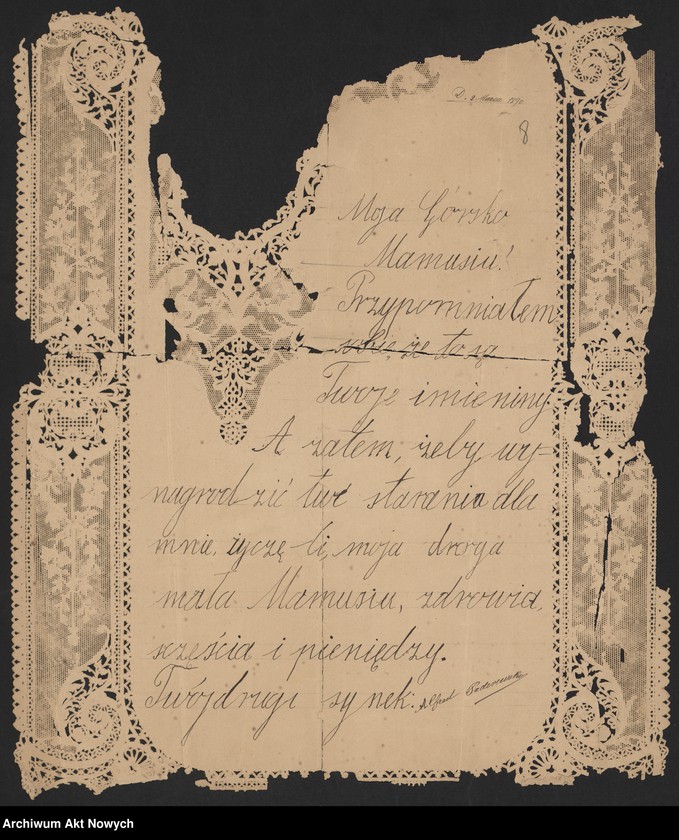 D. 8 Marca 1890
8
Moja Górsko
Mamusiu!
Przypomniałem
sobie że to są
Twoje imieniny
A zatem, żeby wy-
nagrodzić twe starania dla
mnie, życzę Ci, moja droga
mała Mamusiu, zdrowia,
sczęścia i pieniędzy.
Twój drugi synek. Alfred Paderewski
Archiwum Akt Nowych